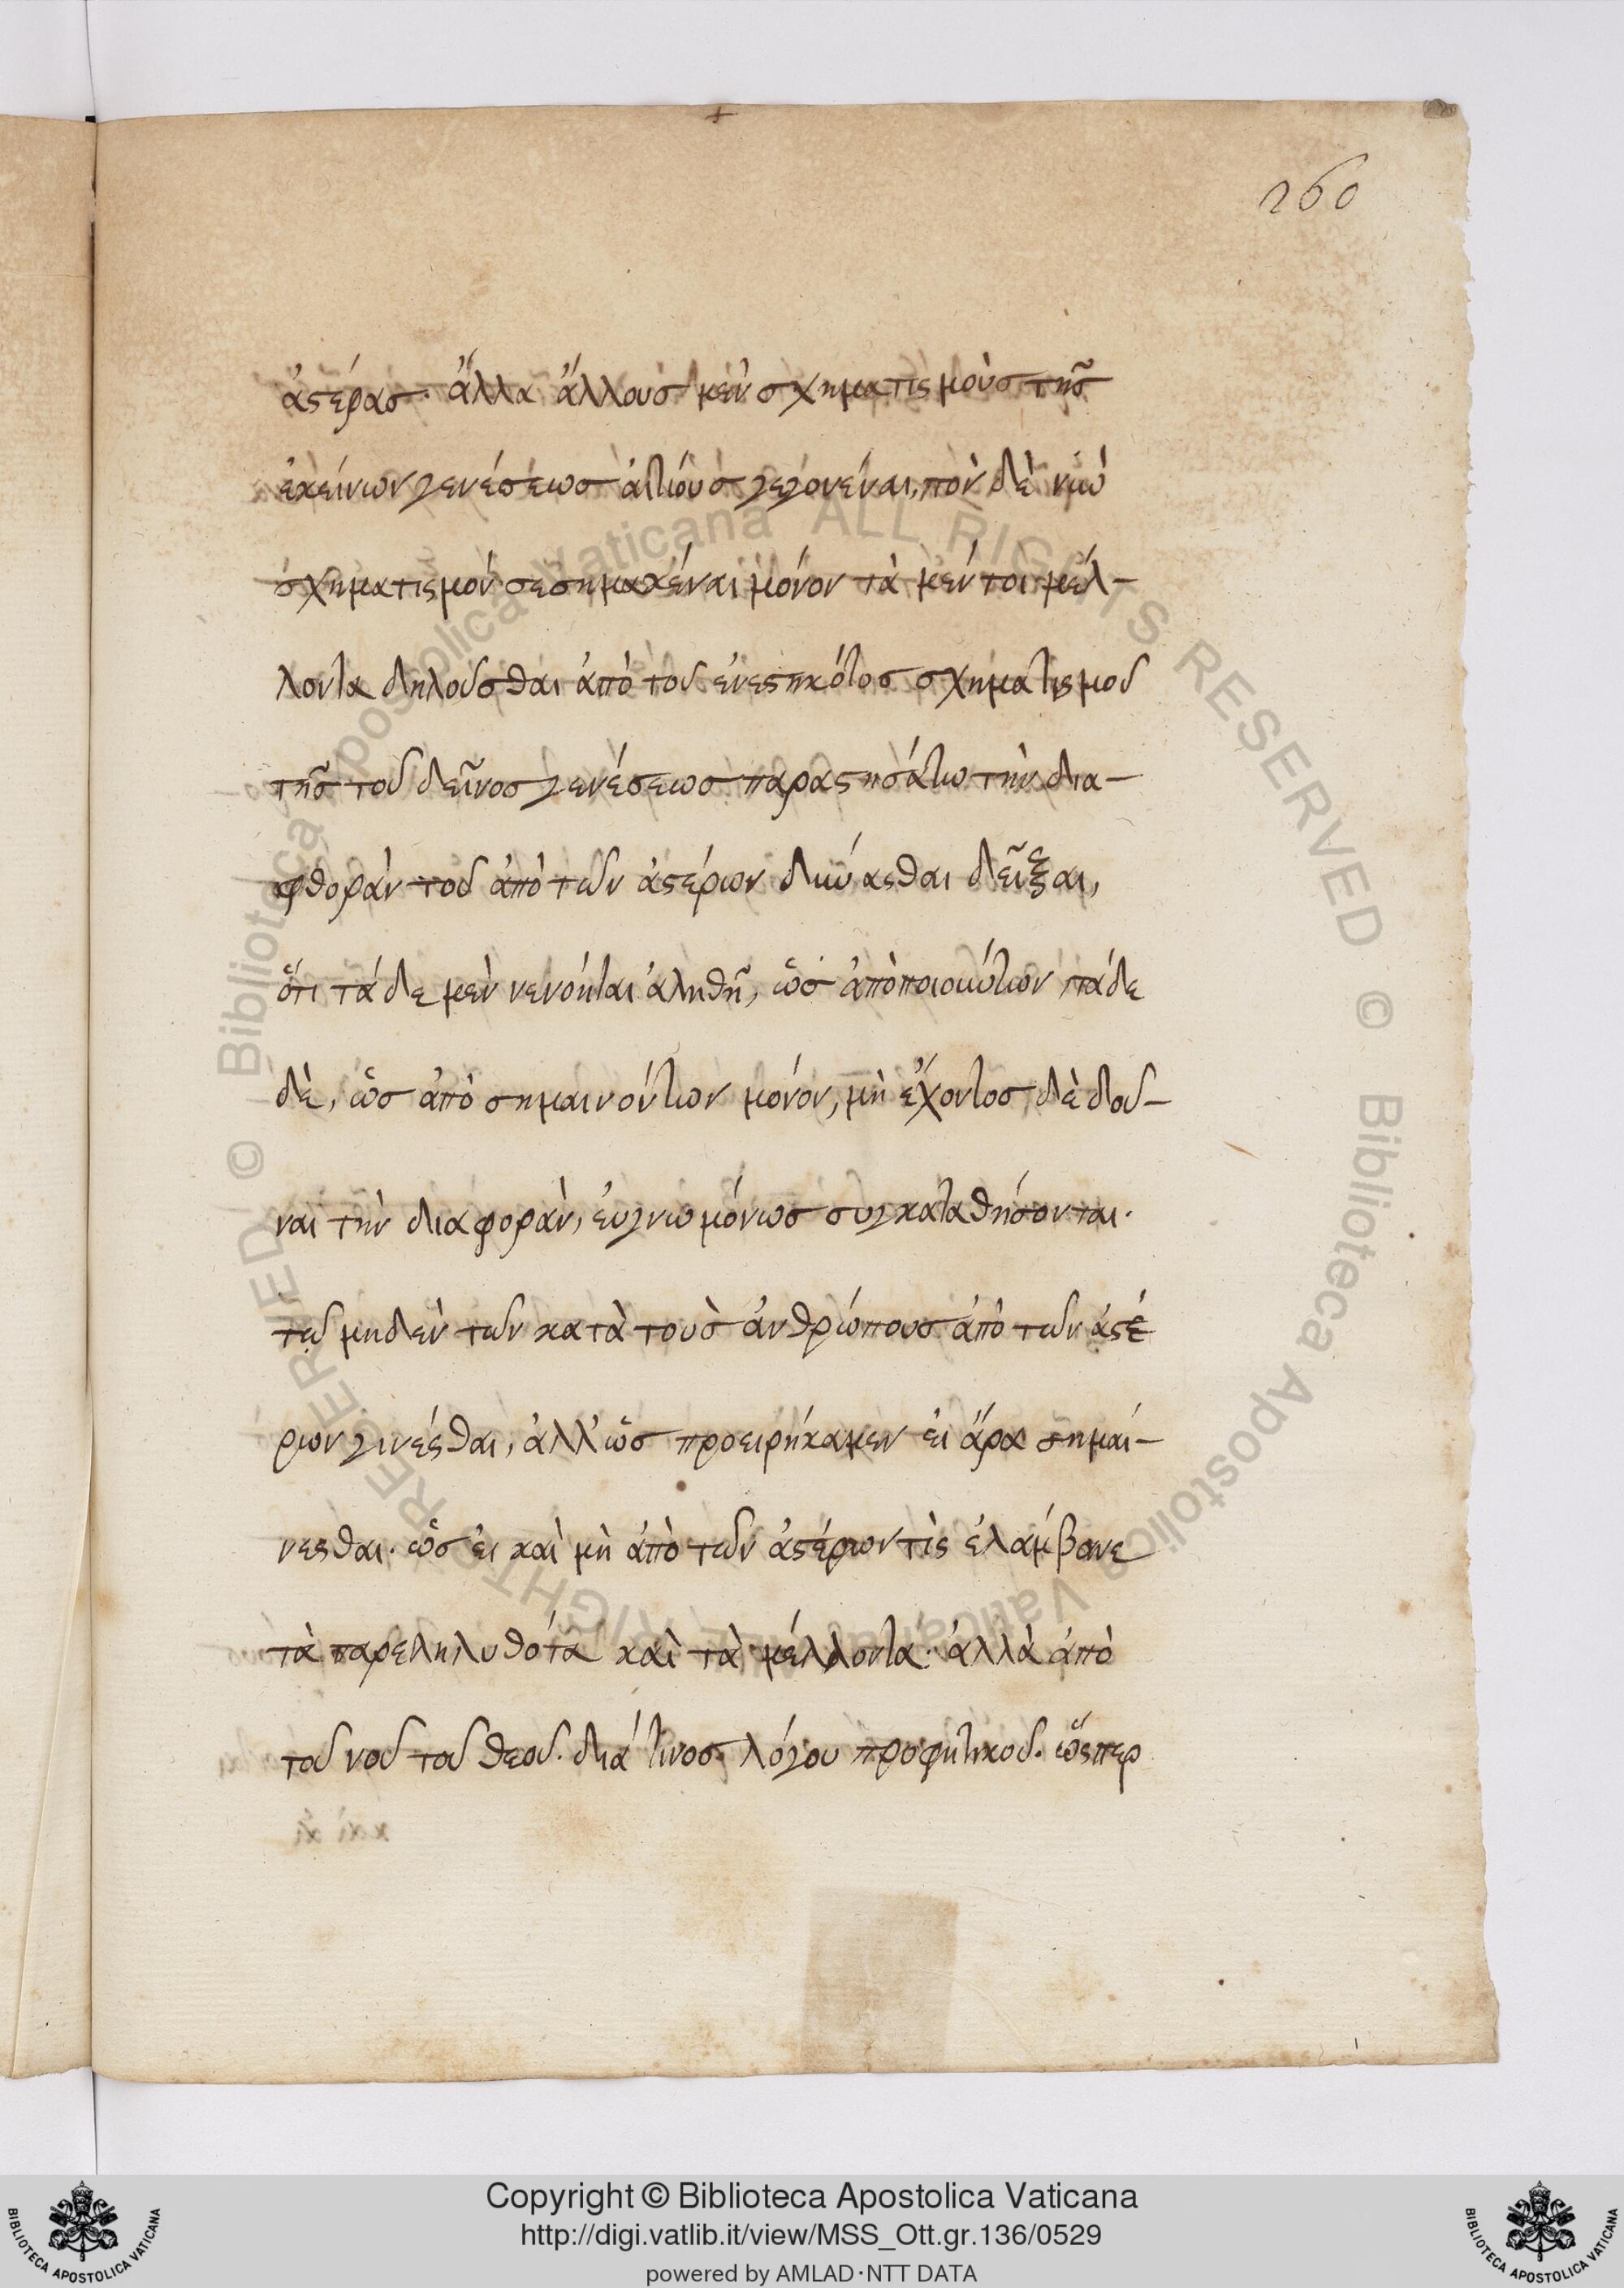 260
ἀστέρας· ἄλλα ἄλλους μὲν σχηματισμοὺς τῆς
ἐκείνων γενέσεως ἀιτίους γεγονέναι, πὸν δὲ νῦν
σχηματισμὸν σεσημακέναι μόνον τὰ μέν τοι μέλ-
λοντα δηλοῦσθαι ἀπὸ τοῦ ἐνεστηκότος σχηματισμοῦ
τῆς τοῦ δεῖνος γενέσεως παραστησάτω τὴν δια-
φθορὰν τοῦ ἀπὸ τῶν ἀστέρων δύνασθαι δεῖξαι,
ὅτι τάδε μὲν νενόηται ἀληθῆ, ὡς ἀπὸ ποιούντων τάδε
δὲ, ὡς ἀπὸ σημαινόντων μόνον, μὴ ἔχοντος δὲ δοῦ-
ναι τὴν διαφορὰν, ἐυγνωμόνως συγκαταθήσονται.
τῷ μηδὲν τῶν κατὰ τοὺς ἀνθρώπους ἀπὸ τῶν ἀστέ
ρων γινέσθαι, ἀλλ' ὡς προειρήκαμεν ἐι ἄρα σημαί-
νεσθαι. ὡς ἐι καὶ μὴ ἀπὸ τῶν ἀστέρων τὶς ἐλάμβανε
τὰ παρεληλυθότα καὶ τὰ μέλλοντα· ἀλλὰ ἀπὸ
τοῦ νοῦ τοῦ θεοῦ. διά τινος λόγου προφητικοῦ. ὥσπερ
Copyright © Biblioteca Apostolica Vaticana
http://digi.vatlib.it/view/MSS_Ott.gr.136/0529
powered by AMLAD·NTT DATA
BIBLIOTECA APOSTOLICA VATICANA
BIBLIOTECA APOSTOLICA VATICANA
© Biblioteca Apostolica Vaticana ALL RIGHTS RESERVED © Biblioteca Apostolica Vaticana ALL RIGHTS RESERVED